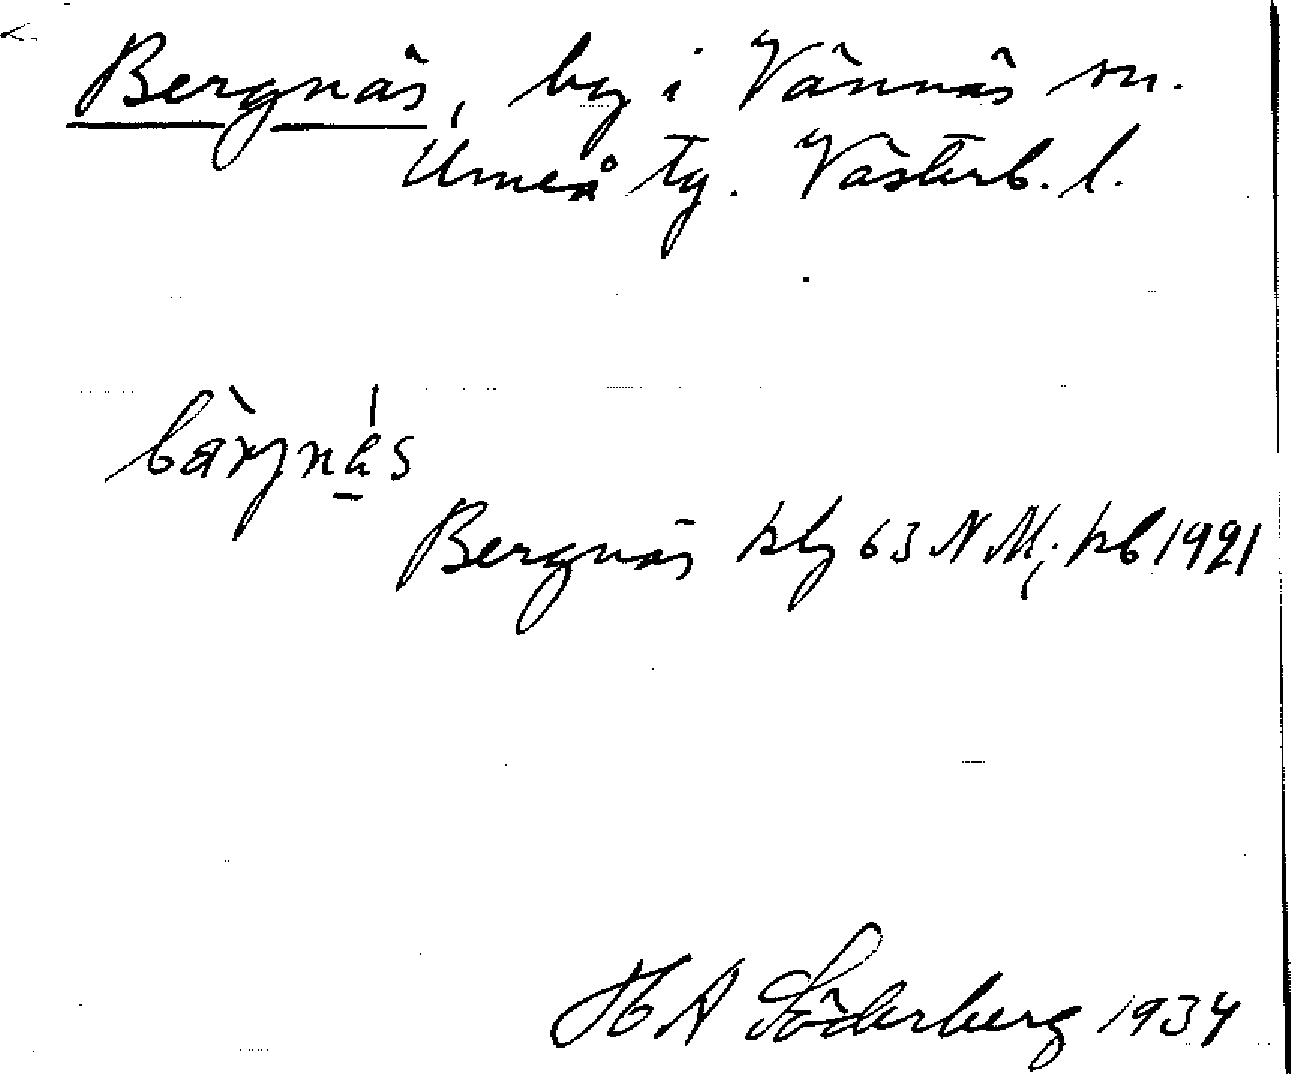 Bergnäs, by i Vännäs sn.
Umeå tg. Västerb. l.
bàrjnás
Bergnäs kbl 63 N M; kb 1921
H A Söderberg 1934